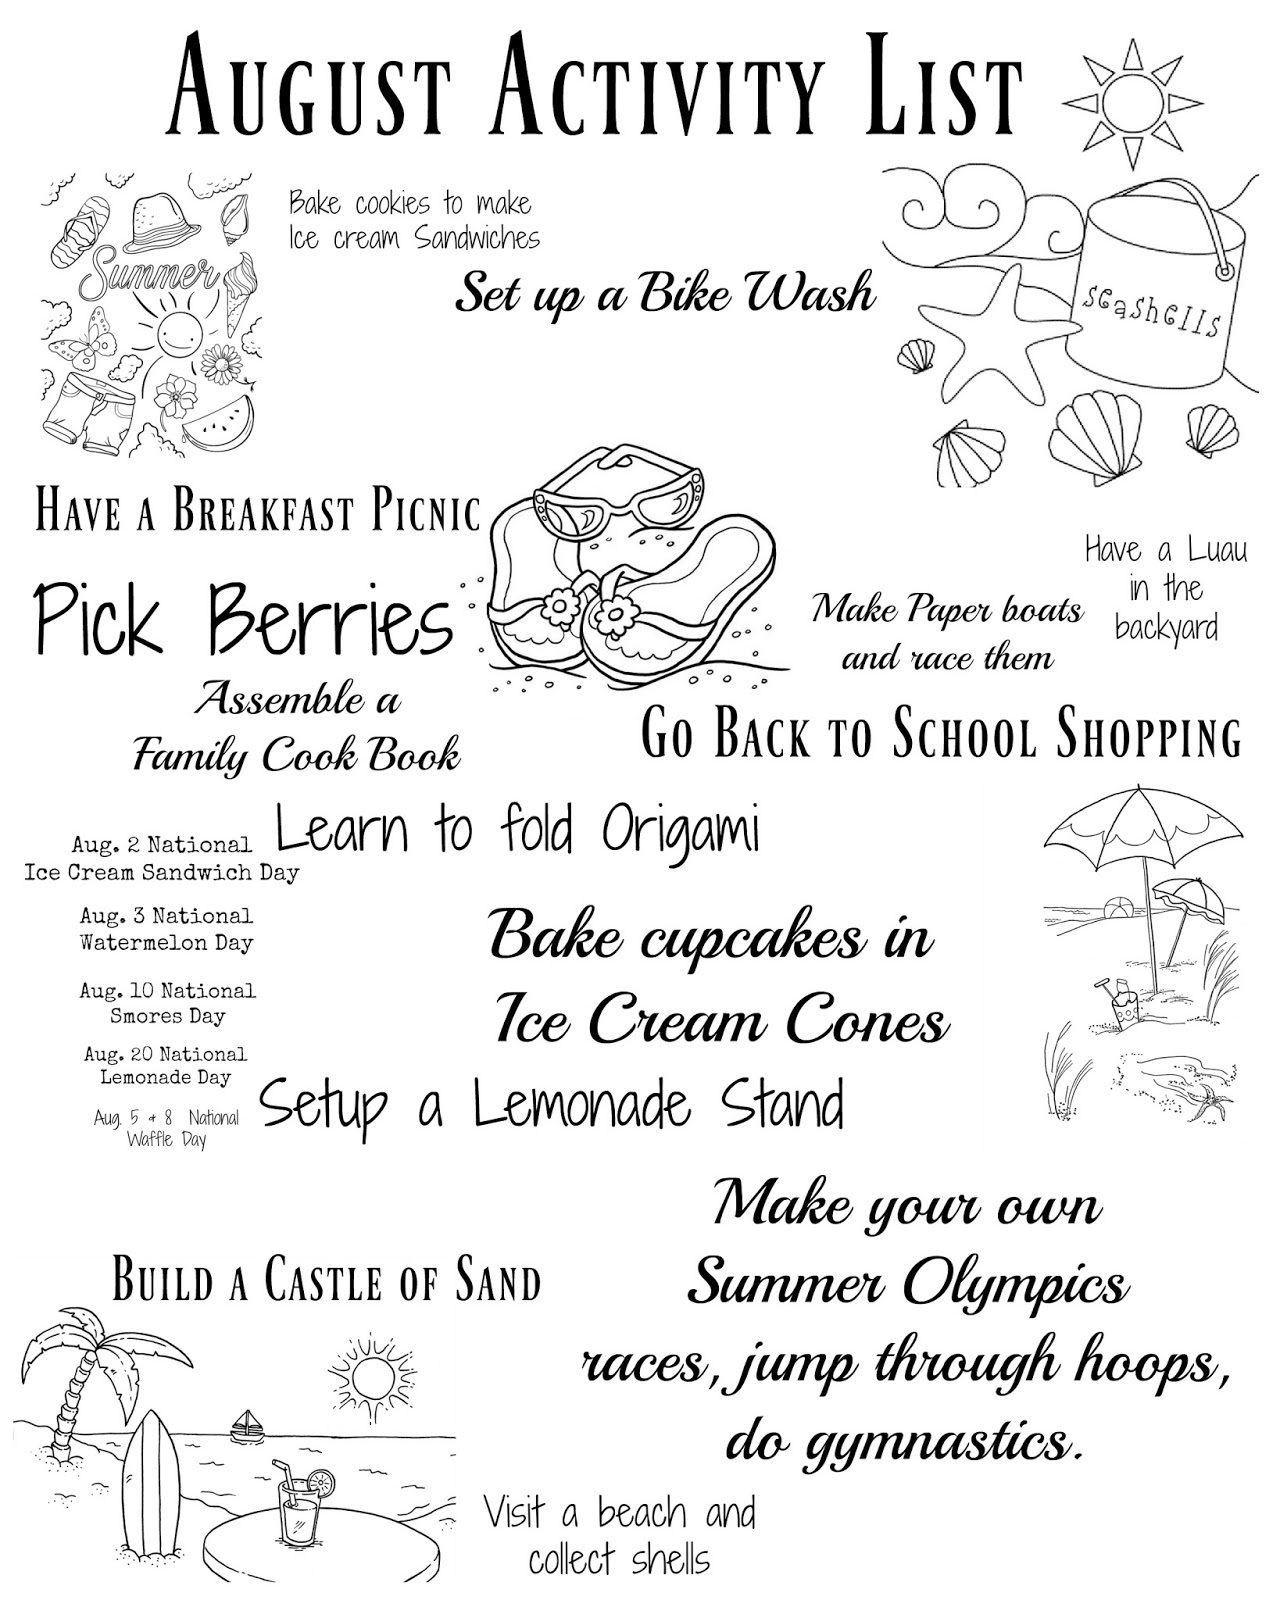 August Activity List
Summer
Bake cookies to make
Ice cream Sandwiches
Set up a Bike Wash
seashells
Have a Breakfast Picnic
Pick Berries
Have a Luau
in the
backyard
Make Paper boats
and race them
Assemble a
Family Cook Book
Go Back to School Shopping
Learn to fold Origami
Aug. 2 National
Ice Cream Sandwich Day
Aug. 3 National
Watermelon Day
Aug. 10 National
Smores Day
Aug. 20 National
Lemonade Day
Aug. 5 + 8 National
Waffle Day
Bake cupcakes in
Ice Cream Cones
Setup a Lemonade Stand
Make your own
Summer Olympics
races, jump through hoops,
do gymnastics.
Build a Castle of Sand
Visit a beach and
collect shells